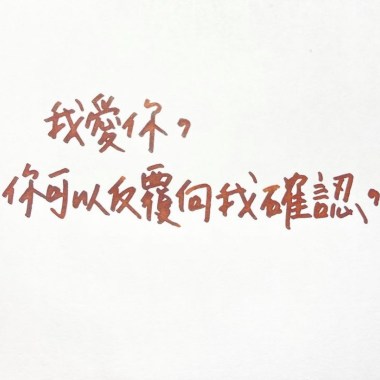 我愛你，
你可以反覆向我確認，